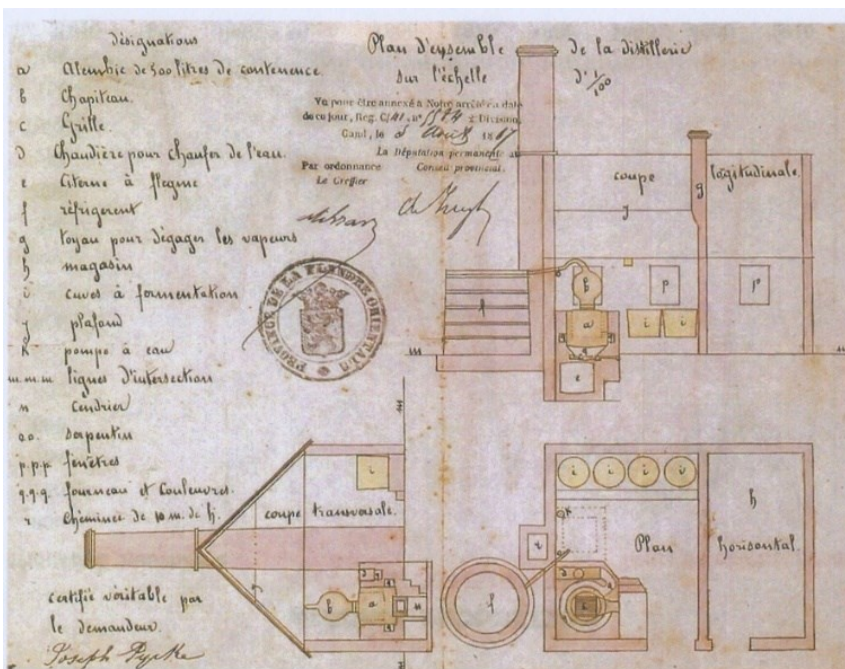 désignations
a Alembic de 500 litres de contenence.
b Chapiteau.
c Grille.
d Chaudière pour chaufer de l'eau.
e Citerne à flegme
f réfrigerent
g toyau pour dégager les vapeurs
h magasin
i cuves à fermentation
j plafond
k pompe à eau
m.m.m lignes d'intersection
n Cendrier
o.o. serpentin
p.p.p fenêtres
q.q.q. fourneau et Couleuvres.
r Cheminée de 10 m. de h.
certifié véritable par
le demandeur.
Joseph
Plan d'ensemble de la distillerie
sur l'échelle d'1/100
Vu pour être annexé à Notre arrêté en date
de ce jour, Rég. C/41, n° 2e Division.
Gand, le Août 1867
La Députation permanente du
Par ordonnance Conseil provincial.
Le Greffier
PROVINCE DE LA FLANDRE ORIENTALE
coupe longitudinale.
j
g
f
b
p
p
a
i
i
e
m
m
coupe transversale.
i
b
a
n
Plan horisontal.
i
i
i
i
h
k
f